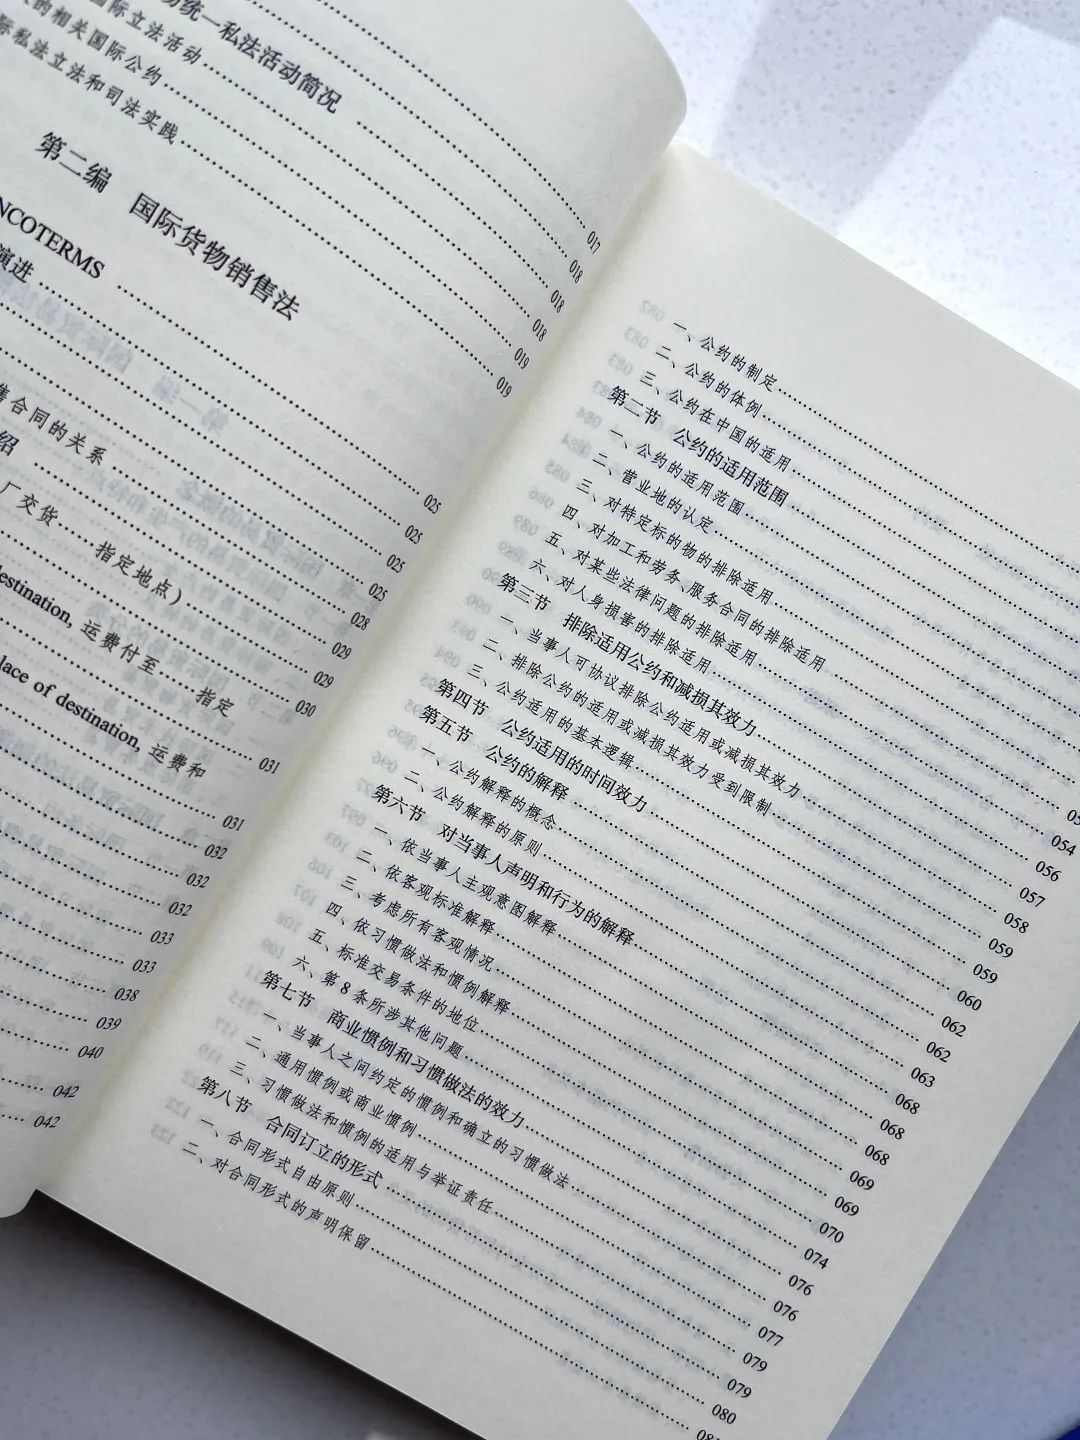 易统一私法活动简况 …… 017
国际立法活动 …… 018
的相关国际公约 …… 018
际私法立法和司法实践 …… 019
019
第二编 国际货物销售法
NCOTERMS …… 025
演进 …… 025
025
售合同的关系 …… 025
绍 …… 028
029
厂交货……指定地点） …… 029
030
destination, 运费付至……指定
031
lace of destination, 运费和
031
032
032
032
033
033
038
039
040
042
042
一、公约的制定 ……
二、公约的体例 ……
三、公约在中国的适用 ……
第二节 公约的适用范围 ……
一、公约的适用范围 ……
二、营业地的认定 ……
三、对特定标的物的排除适用 ……
四、对加工和劳务、服务合同的排除适用 ……
五、对某些法律问题的排除适用 …… 054
六、对人身损害的排除适用 …… 056
第三节 排除适用公约和减损其效力 …… 057
一、当事人可协议排除公约适用或减损其效力 …… 058
二、排除公约的适用或减损其效力受到限制 …… 059
三、公约适用的基本逻辑 …… 059
第四节 公约适用的时间效力 …… 060
第五节 公约的解释 …… 062
一、公约解释的概念 …… 062
二、公约解释的原则 …… 063
第六节 对当事人声明和行为的解释 …… 068
一、依当事人主观意图解释 …… 068
二、依客观标准解释 …… 068
三、考虑所有客观情况 …… 069
四、依习惯做法和惯例解释 …… 069
五、标准交易条件的地位 …… 070
六、第8条所涉其他问题 …… 074
第七节 商业惯例和习惯做法的效力 …… 076
一、当事人之间约定的惯例和确立的习惯做法 …… 076
二、通用惯例或商业惯例 …… 077
三、习惯做法和惯例的适用与举证责任 …… 079
第八节 合同订立的形式 …… 079
一、合同形式自由原则 …… 080
二、对合同形式的声明保留 ……